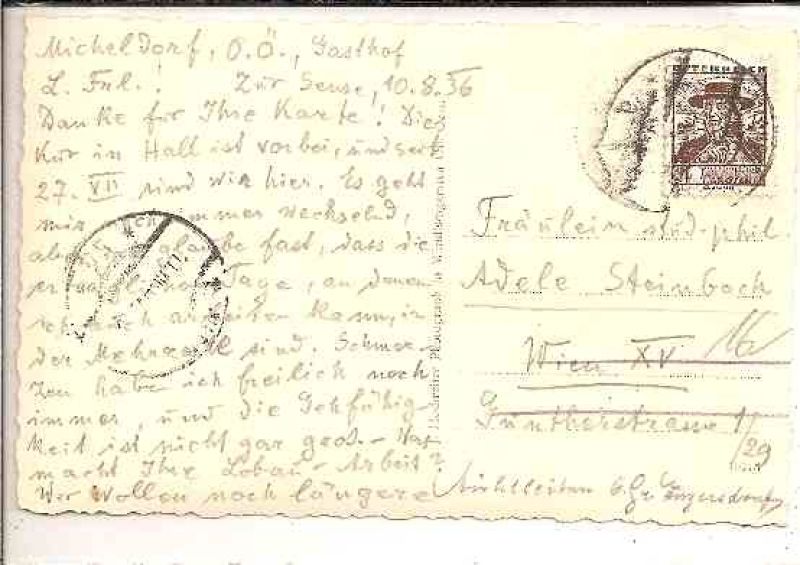 Micheldorf, O.Ö., Gasthof
L. Frl.! Zur Sense, 10.8.36
Danke für Ihre Karte! Die
Kur in Hall ist vorbei, und seit
27. VII sind wir hier. Es geht
mir immer wechselnd,
aber glaube fast, dass die
Tage, an denen
ich arbeiten kann, in
der Mehrzahl sind. Schmer-
zen habe ich freilich noch
immer, und die Gehfähig-
keit ist nicht gar gross. - Was
macht Ihre Lobau-Arbeit?
Wir wollen noch längere
ÖSTERREICH
Fräulein stud. phil.
Adele Steinbach
Wien XV
16
Güntherstrasse 1
/29